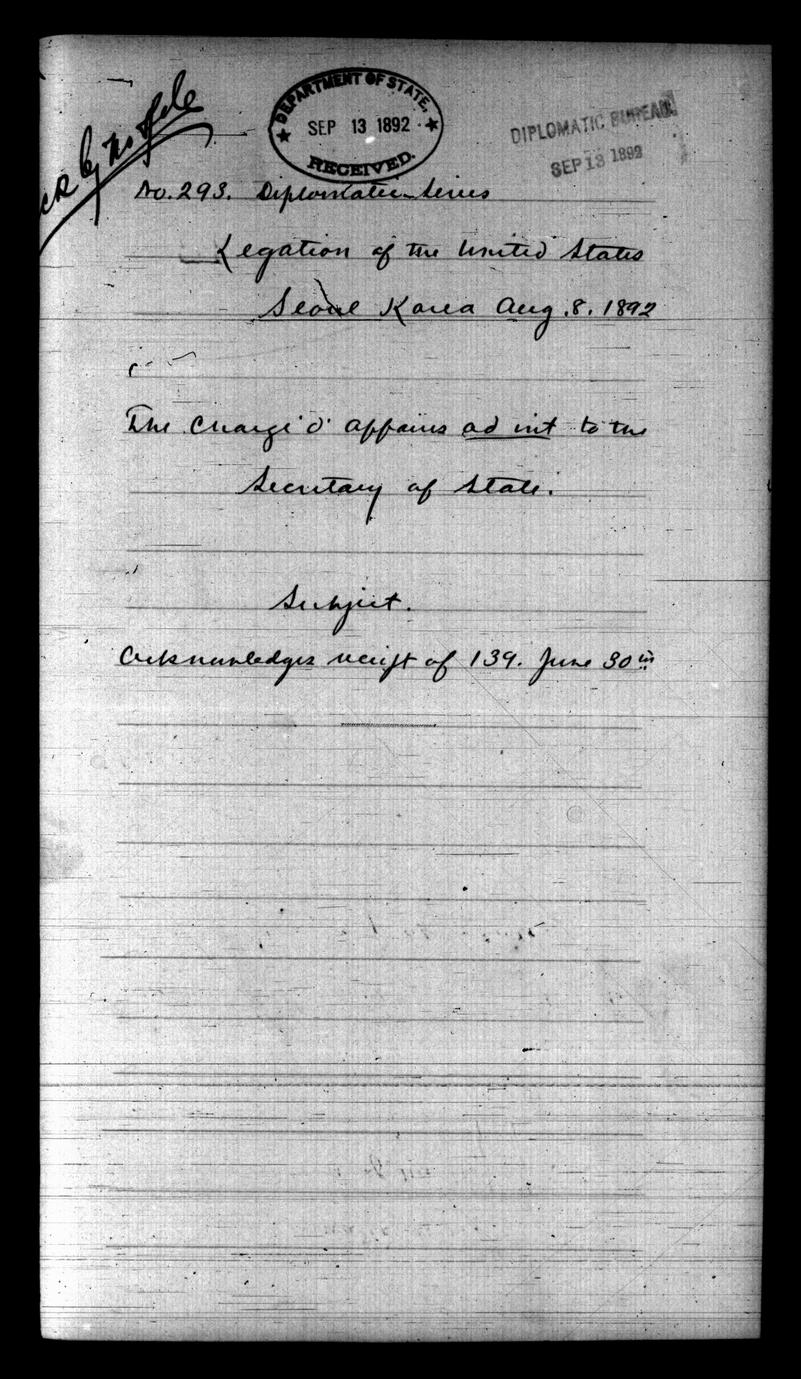 DEPARTMENT OF STATE,
SEP 13 1892
RECEIVED.
DIPLOMATIC BUREAU.
SEP 13 1892
No. 293. Diplomatic Series
Legation of the United States
Seoul Korea Aug. 8. 1892
The Chargé d' Affaires ad int to the
Secretary of State.
Subject.
Acknowledges receipt of 139. June 30th